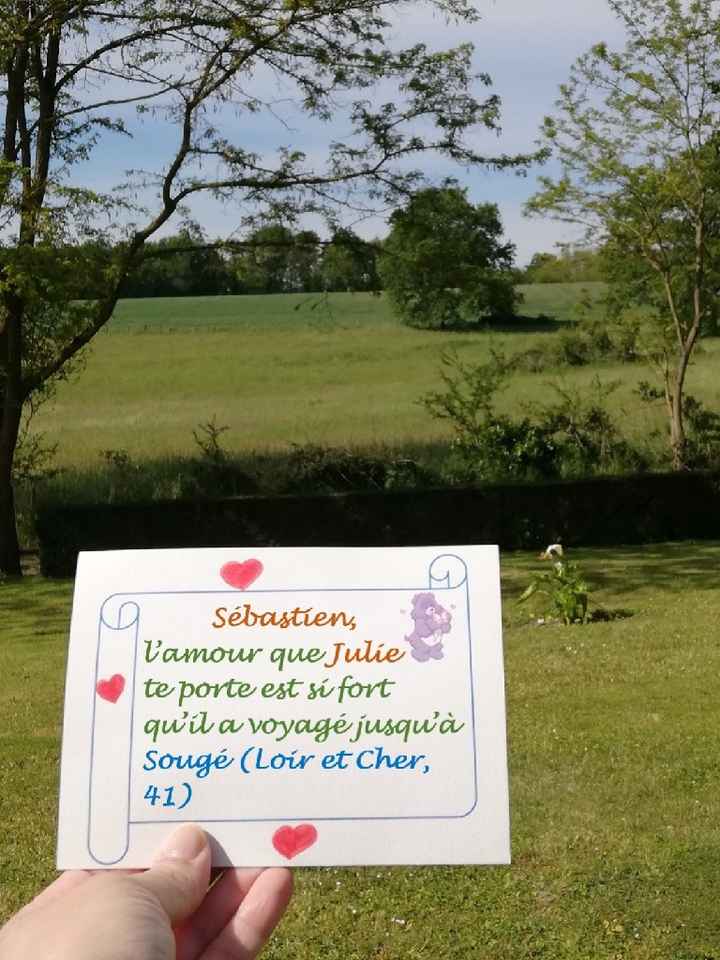 Sébastien,
l'amour que Julie
te porte est si fort
qu'il a voyagé jusqu'à
Sougé (Loir et Cher,
41)